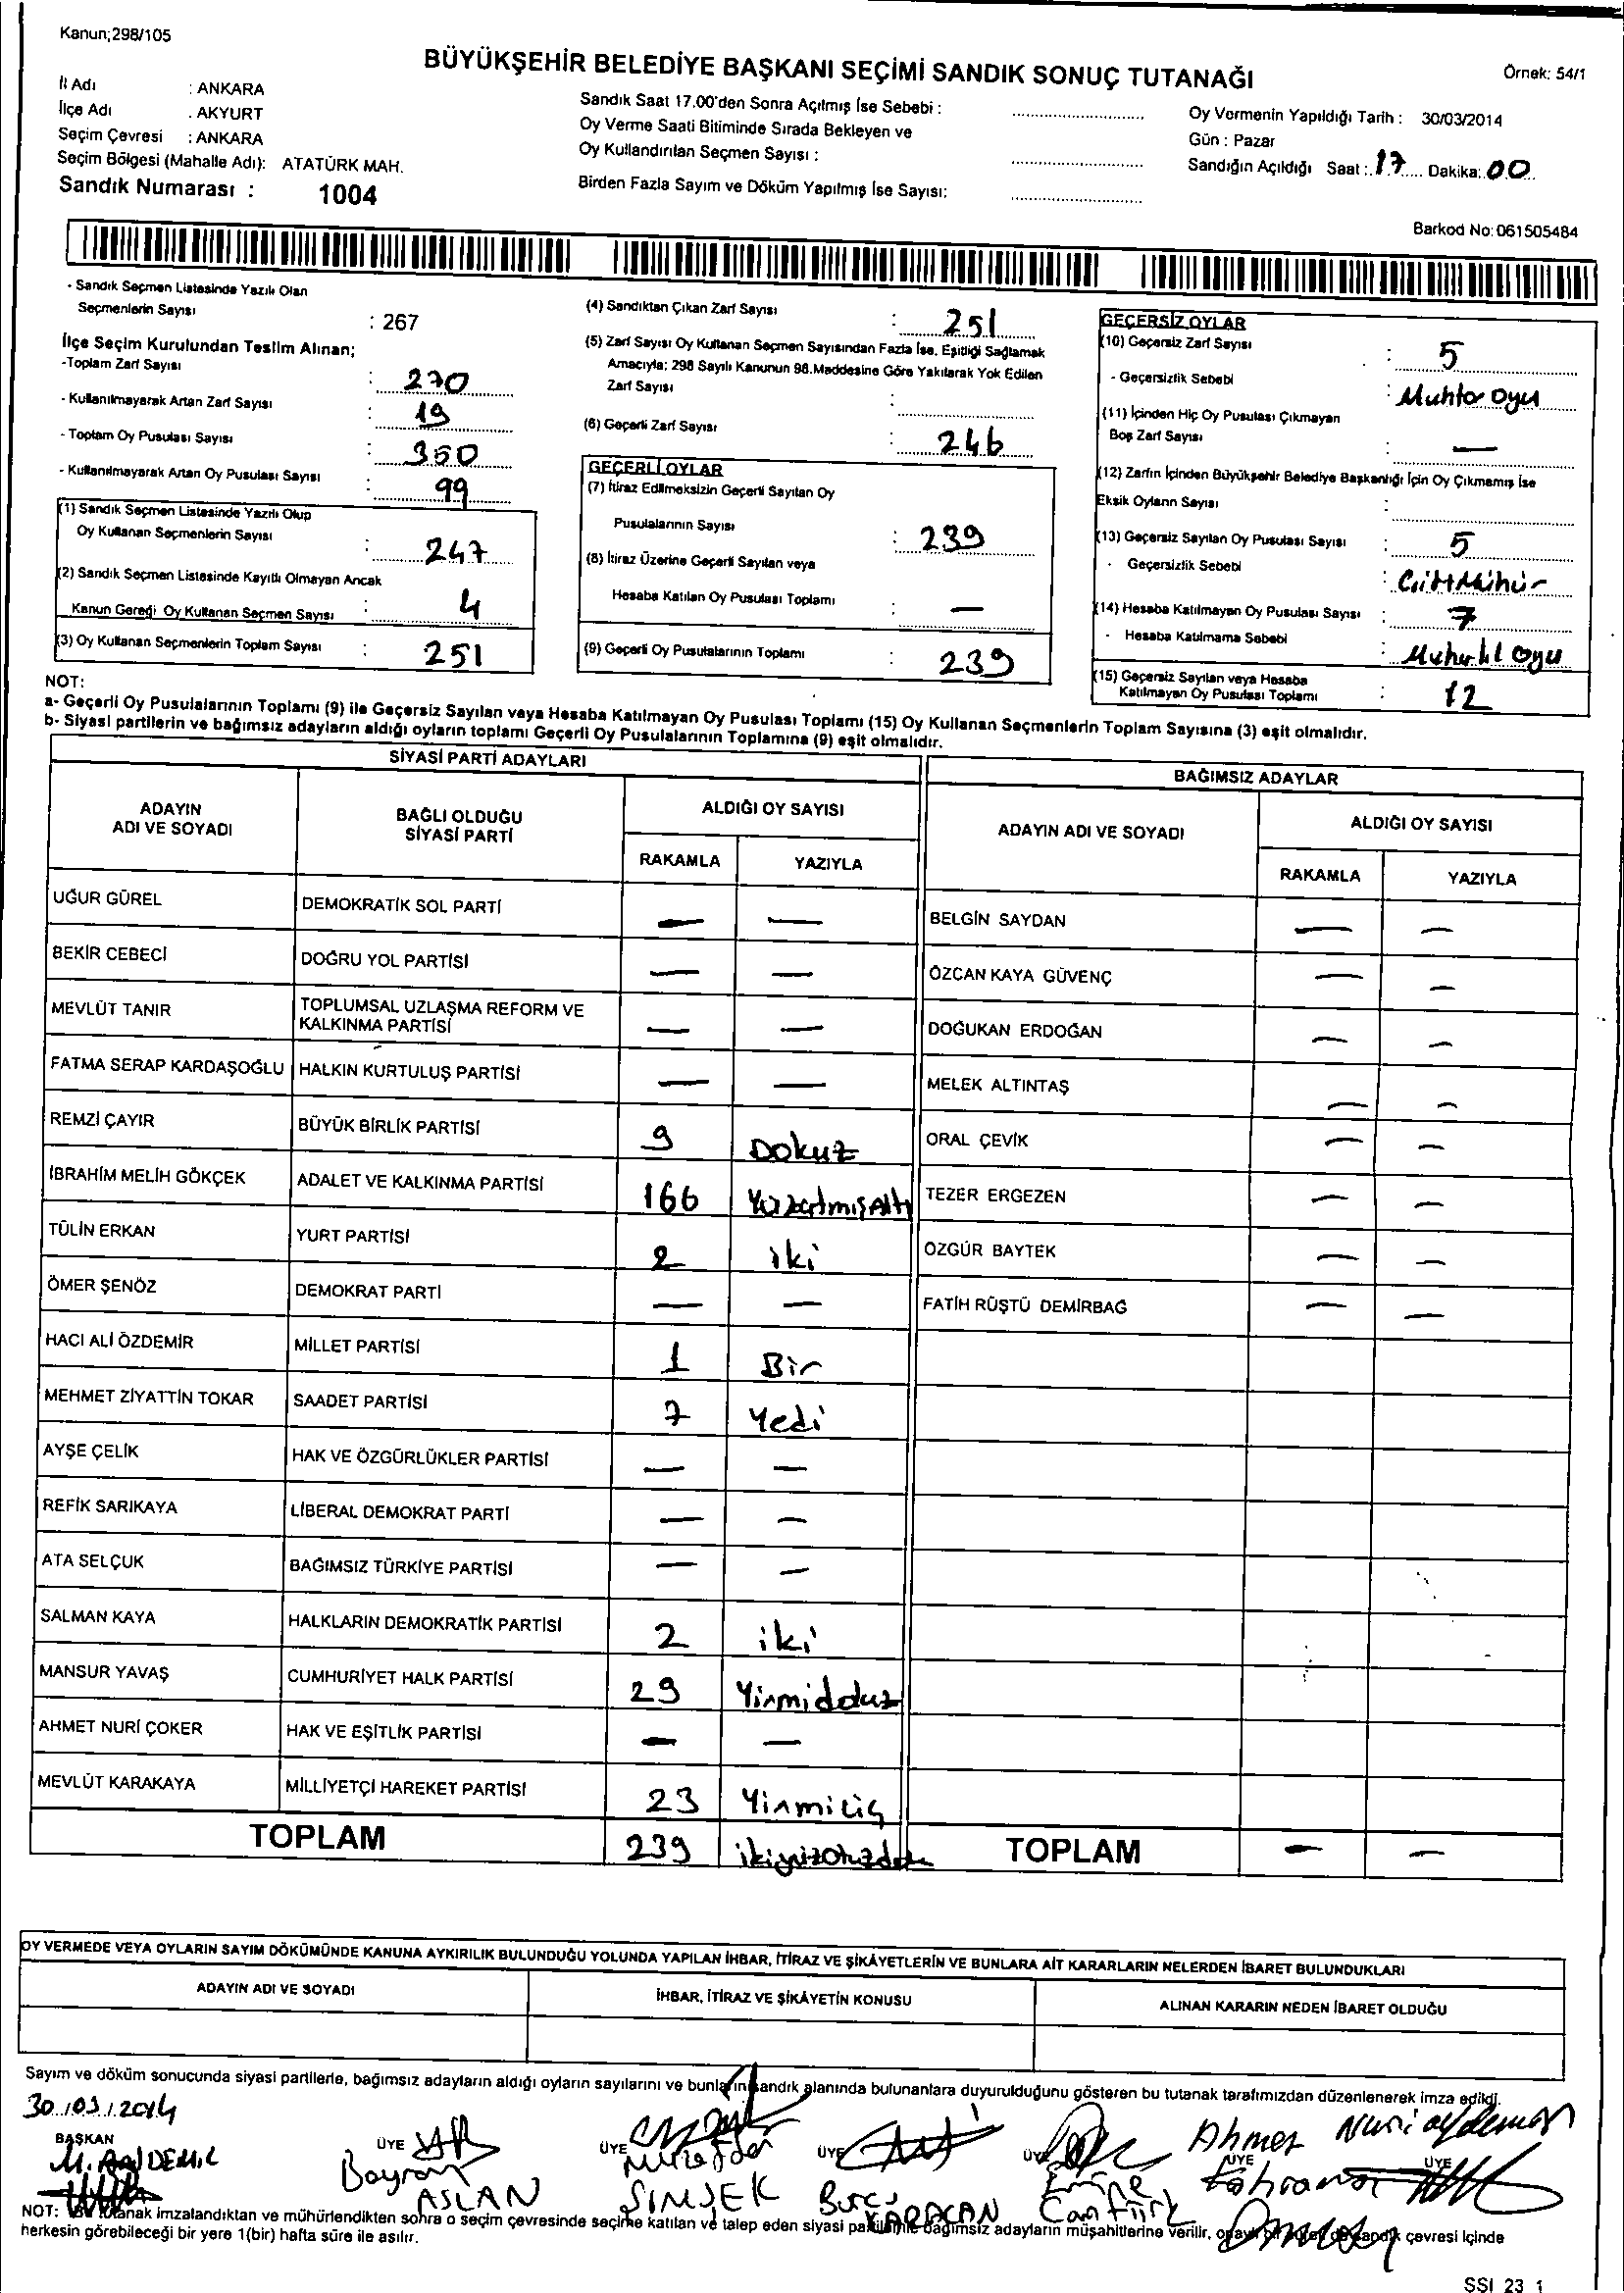 Kanun;298/105
BÜYÜKŞEHİR BELEDİYE BAŞKANI SEÇİMİ SANDIK SONUÇ TUTANAĞI
Örnek: 54/1
İl Adı : ANKARA
İlçe Adı : AKYURT
Seçim Çevresi : ANKARA
Seçim Bölgesi (Mahalle Adı): ATATÜRK MAH.
Sandık Numarası : 1004
Sandık Saat 17.00'den Sonra Açılmış İse Sebebi :
Oy Verme Saati Bitiminde Sırada Bekleyen ve
Oy Kullandırılan Seçmen Sayısı :
Birden Fazla Sayım ve Döküm Yapılmış İse Sayısı:
Oy Vermenin Yapıldığı Tarih : 30/03/2014
Gün : Pazar
Sandığın Açıldığı Saat : 17 Dakika: 00
Barkod No: 061505484
- Sandık Seçmen Listesinde Yazılı Olan
Seçmenlerin Sayısı : 267
İlçe Seçim Kurulundan Teslim Alınan;
-Toplam Zarf Sayısı : 270
- Kullanılmayarak Artan Zarf Sayısı : 19
- Toplam Oy Pusulası Sayısı : 350
- Kullanılmayarak Artan Oy Pusulası Sayısı : 99
(1) Sandık Seçmen Listesinde Yazılı Olup
Oy Kullanan Seçmenlerin Sayısı : 247
(2) Sandık Seçmen Listesinde Kayıtlı Olmayan Ancak
Kanun Gereği Oy Kullanan Seçmen Sayısı : 4
(3) Oy Kullanan Seçmenlerin Toplam Sayısı : 251
(4) Sandıktan Çıkan Zarf Sayısı : 251
(5) Zarf Sayısı Oy Kullanan Seçmen Sayısından Fazla İse, Eşitliği Sağlamak
Amacıyla; 298 Sayılı Kanunun 98.Maddesine Göre Yakılarak Yok Edilen
Zarf Sayısı :
(6) Geçerli Zarf Sayısı : 246
GEÇERLİ OYLAR
(7) İtiraz Edilmeksizin Geçerli Sayılan Oy
Pusulalarının Sayısı : 239
(8) İtiraz Üzerine Geçerli Sayılan veya
Hesaba Katılan Oy Pusulası Toplamı : —
(9) Geçerli Oy Pusulalarının Toplamı : 239
GEÇERSİZ OYLAR
(10) Geçersiz Zarf Sayısı : 5
- Geçersizlik Sebebi : Muhtar Oyu
(11) İçinden Hiç Oy Pusulası Çıkmayan
Boş Zarf Sayısı : —
(12) Zarfın İçinden Büyükşehir Belediye Başkanlığı İçin Oy Çıkmamış İse
Eksik Oyların Sayısı :
(13) Geçersiz Sayılan Oy Pusulası Sayısı : 5
- Geçersizlik Sebebi : Çift Mühür
(14) Hesaba Katılmayan Oy Pusulası Sayısı : 7
- Hesaba Katılmama Sebebi : Oyu
(15) Geçersiz Sayılan veya Hesaba
Katılmayan Oy Pusulası Toplamı : 12
NOT:
a- Geçerli Oy Pusulalarının Toplamı (9) ile Geçersiz Sayılan veya Hesaba Katılmayan Oy Pusulası Toplamı (15) Oy Kullanan Seçmenlerin Toplam Sayısına (3) eşit olmalıdır.
b- Siyasi partilerin ve bağımsız adayların aldığı oyların toplamı Geçerli Oy Pusulalarının Toplamına (9) eşit olmalıdır.
SİYASİ PARTİ ADAYLARI
ADAYIN ADI VE SOYADI BAĞLI OLDUĞU SİYASİ PARTİ ALDIĞI OY SAYISI
RAKAMLA YAZIYLA
UĞUR GÜREL DEMOKRATİK SOL PARTİ — —
BEKİR CEBECİ DOĞRU YOL PARTİSİ — —
MEVLÜT TANIR TOPLUMSAL UZLAŞMA REFORM VE KALKINMA PARTİSİ — —
FATMA SERAP KARDAŞOĞLU HALKIN KURTULUŞ PARTİSİ — —
REMZİ ÇAYIR BÜYÜK BİRLİK PARTİSİ 9 Dokuz
İBRAHİM MELİH GÖKÇEK ADALET VE KALKINMA PARTİSİ 166 Yüzaltmışaltı
TÜLİN ERKAN YURT PARTİSİ 2 iki
ÖMER ŞENÖZ DEMOKRAT PARTİ — —
HACI ALİ ÖZDEMİR MİLLET PARTİSİ 1 Bir
MEHMET ZİYATTİN TOKAR SAADET PARTİSİ 7 Yedi
AYŞE ÇELİK HAK VE ÖZGÜRLÜKLER PARTİSİ — —
REFİK SARIKAYA LİBERAL DEMOKRAT PARTİ — —
ATA SELÇUK BAĞIMSIZ TÜRKİYE PARTİSİ — —
SALMAN KAYA HALKLARIN DEMOKRATİK PARTİSİ 2 iki
MANSUR YAVAŞ CUMHURİYET HALK PARTİSİ 29 Yirmidokuz
AHMET NURİ ÇOKER HAK VE EŞİTLİK PARTİSİ — —
MEVLÜT KARAKAYA MİLLİYETÇİ HAREKET PARTİSİ 23 Yirmiüç
TOPLAM 239 ikiyüzotuzdokuz
BAĞIMSIZ ADAYLAR
ADAYIN ADI VE SOYADI ALDIĞI OY SAYISI
RAKAMLA YAZIYLA
BELGİN SAYDAN — —
ÖZCAN KAYA GÜVENÇ — —
DOĞUKAN ERDOĞAN — —
MELEK ALTINTAŞ — —
ORAL ÇEVİK — —
TEZER ERGEZEN — —
ÖZGÜR BAYTEK — —
FATİH RÜŞTÜ DEMİRBAĞ — —
TOPLAM — —
OY VERMEDE VEYA OYLARIN SAYIM DÖKÜMÜNDE KANUNA AYKIRILIK BULUNDUĞU YOLUNDA YAPILAN İHBAR, İTİRAZ VE ŞİKÂYETLERİN VE BUNLARA AİT KARARLARIN NELERDEN İBARET BULUNDUKLARI
ADAYIN ADI VE SOYADI İHBAR, İTİRAZ VE ŞİKÂYETİN KONUSU ALINAN KARARIN NEDEN İBARET OLDUĞU
Sayım ve döküm sonucunda siyasi partilerle, bağımsız adayların aldığı oyların sayılarını ve bunların sandık alanında bulunanlara duyurulduğunu gösteren bu tutanak tarafımızdan düzenlenerek imza edildi.
30/03/2014
BAŞKAN ÜYE ÜYE ÜYE ÜYE ÜYE ÜYE
Bayram ASLAN
Muzaffer ŞİMŞEK
Burcu KARACAN
Emine Cantürk
Ahmet Nuri
Kahraman
NOT: Bu tutanak imzalandıktan ve mühürlendikten sonra o seçim çevresinde seçime katılan ve talep eden siyasi partilerle bağımsız adayların müşahitlerine verilir, onaylı bir sureti de sandık çevresi içinde
herkesin görebileceği bir yere 1(bir) hafta süre ile asılır.
SSI 23 1